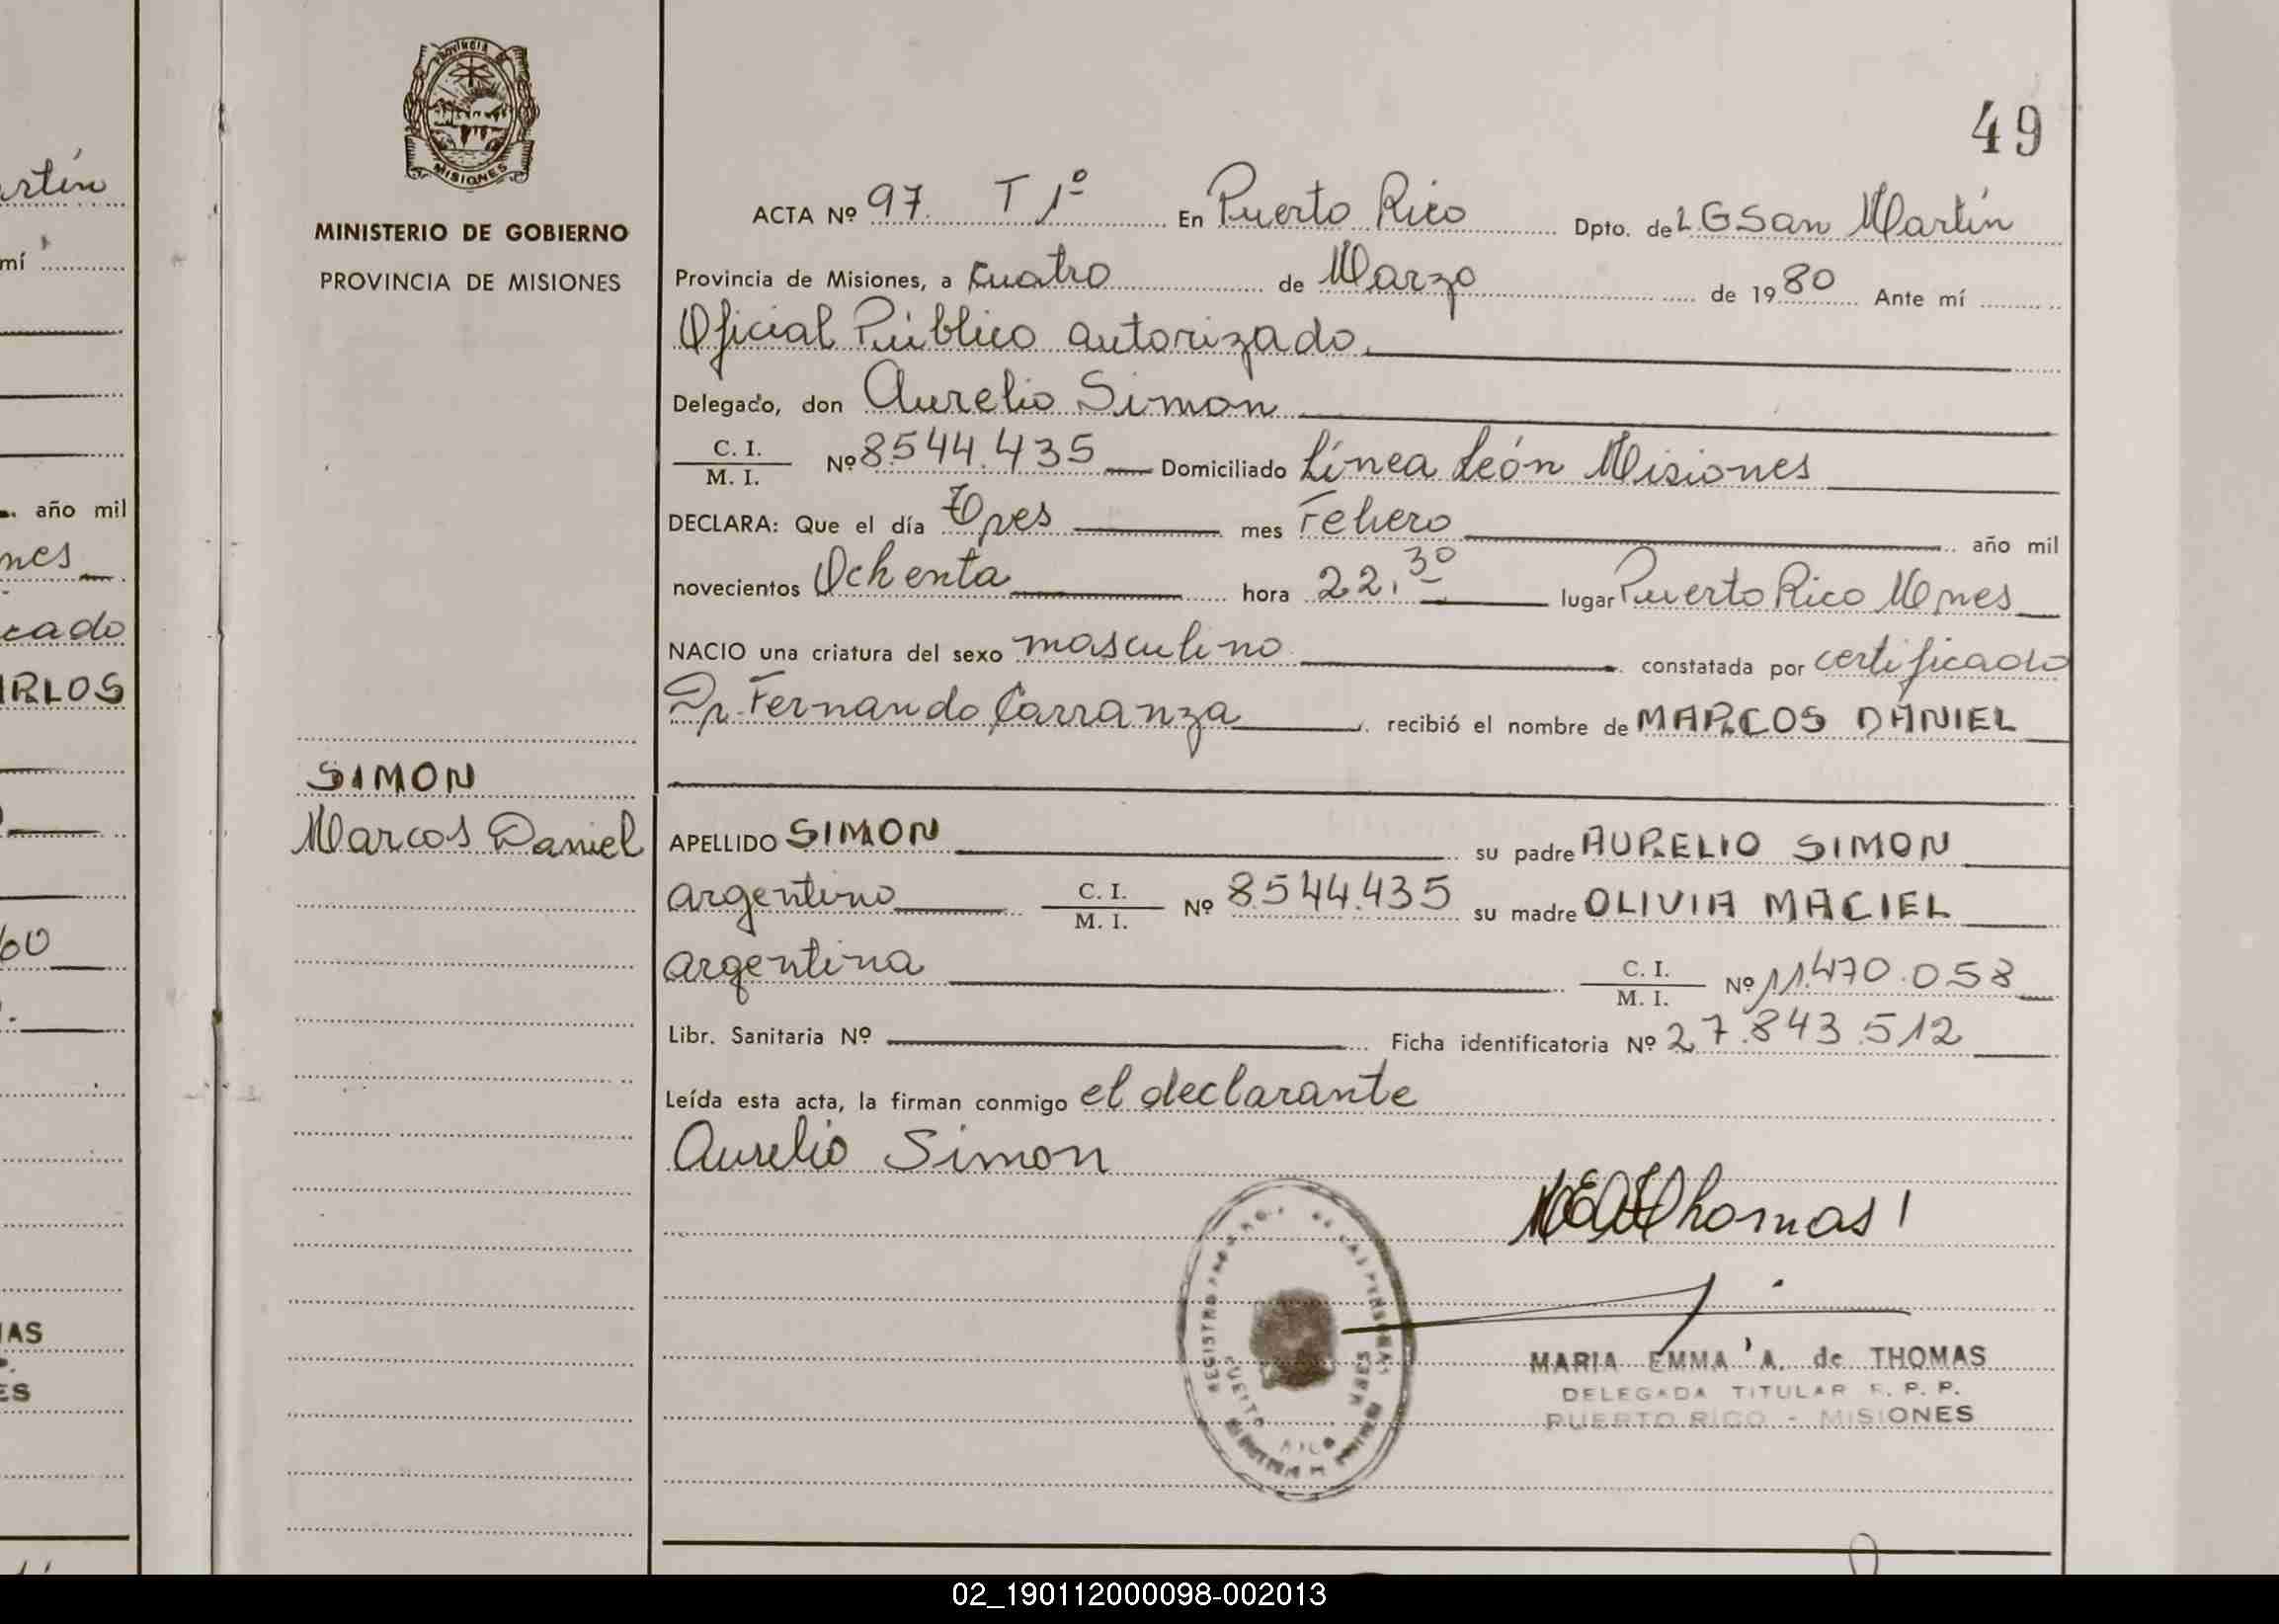 PROVINCIA DE
MISIONES
MINISTERIO DE GOBIERNO
PROVINCIA DE MISIONES
49
ACTA Nº 97 T 1º En Puerto Rico Dpto. de L G San Martín
Provincia de Misiones, a cuatro de Marzo de 1980 Ante mí
Oficial Público autorizado.
Delegado, don Aurelio Simon
C. I.
M. I. Nº 8544.435 Domiciliado Línea León Misiones
DECLARA: Que el día Tres mes Febrero año mil
novecientos Ochenta hora 22,30 lugar Puerto Rico Mnes
NACIO una criatura del sexo masculino constatada por certificado
Dr. Fernando Carranza recibió el nombre de MARCOS DANIEL
SIMON
Marcos Daniel
APELLIDO SIMON su padre AURELIO SIMON
argentino C. I.
M. I. Nº 8544.435 su madre OLIVIA MACIEL
argentina C. I.
M. I. Nº 11.470.058
Libr. Sanitaria Nº Ficha identificatoria Nº 27.843.512
Leída esta acta, la firman conmigo el declarante
Aurelio Simon
Thomas
MARIA EMMA A. de THOMAS
DELEGADA TITULAR R. P. P.
PUERTO RICO - MISIONES
artín
mí
año mil
nes
cado
ARLOS
60
AS
ES
02_190112000098-002013